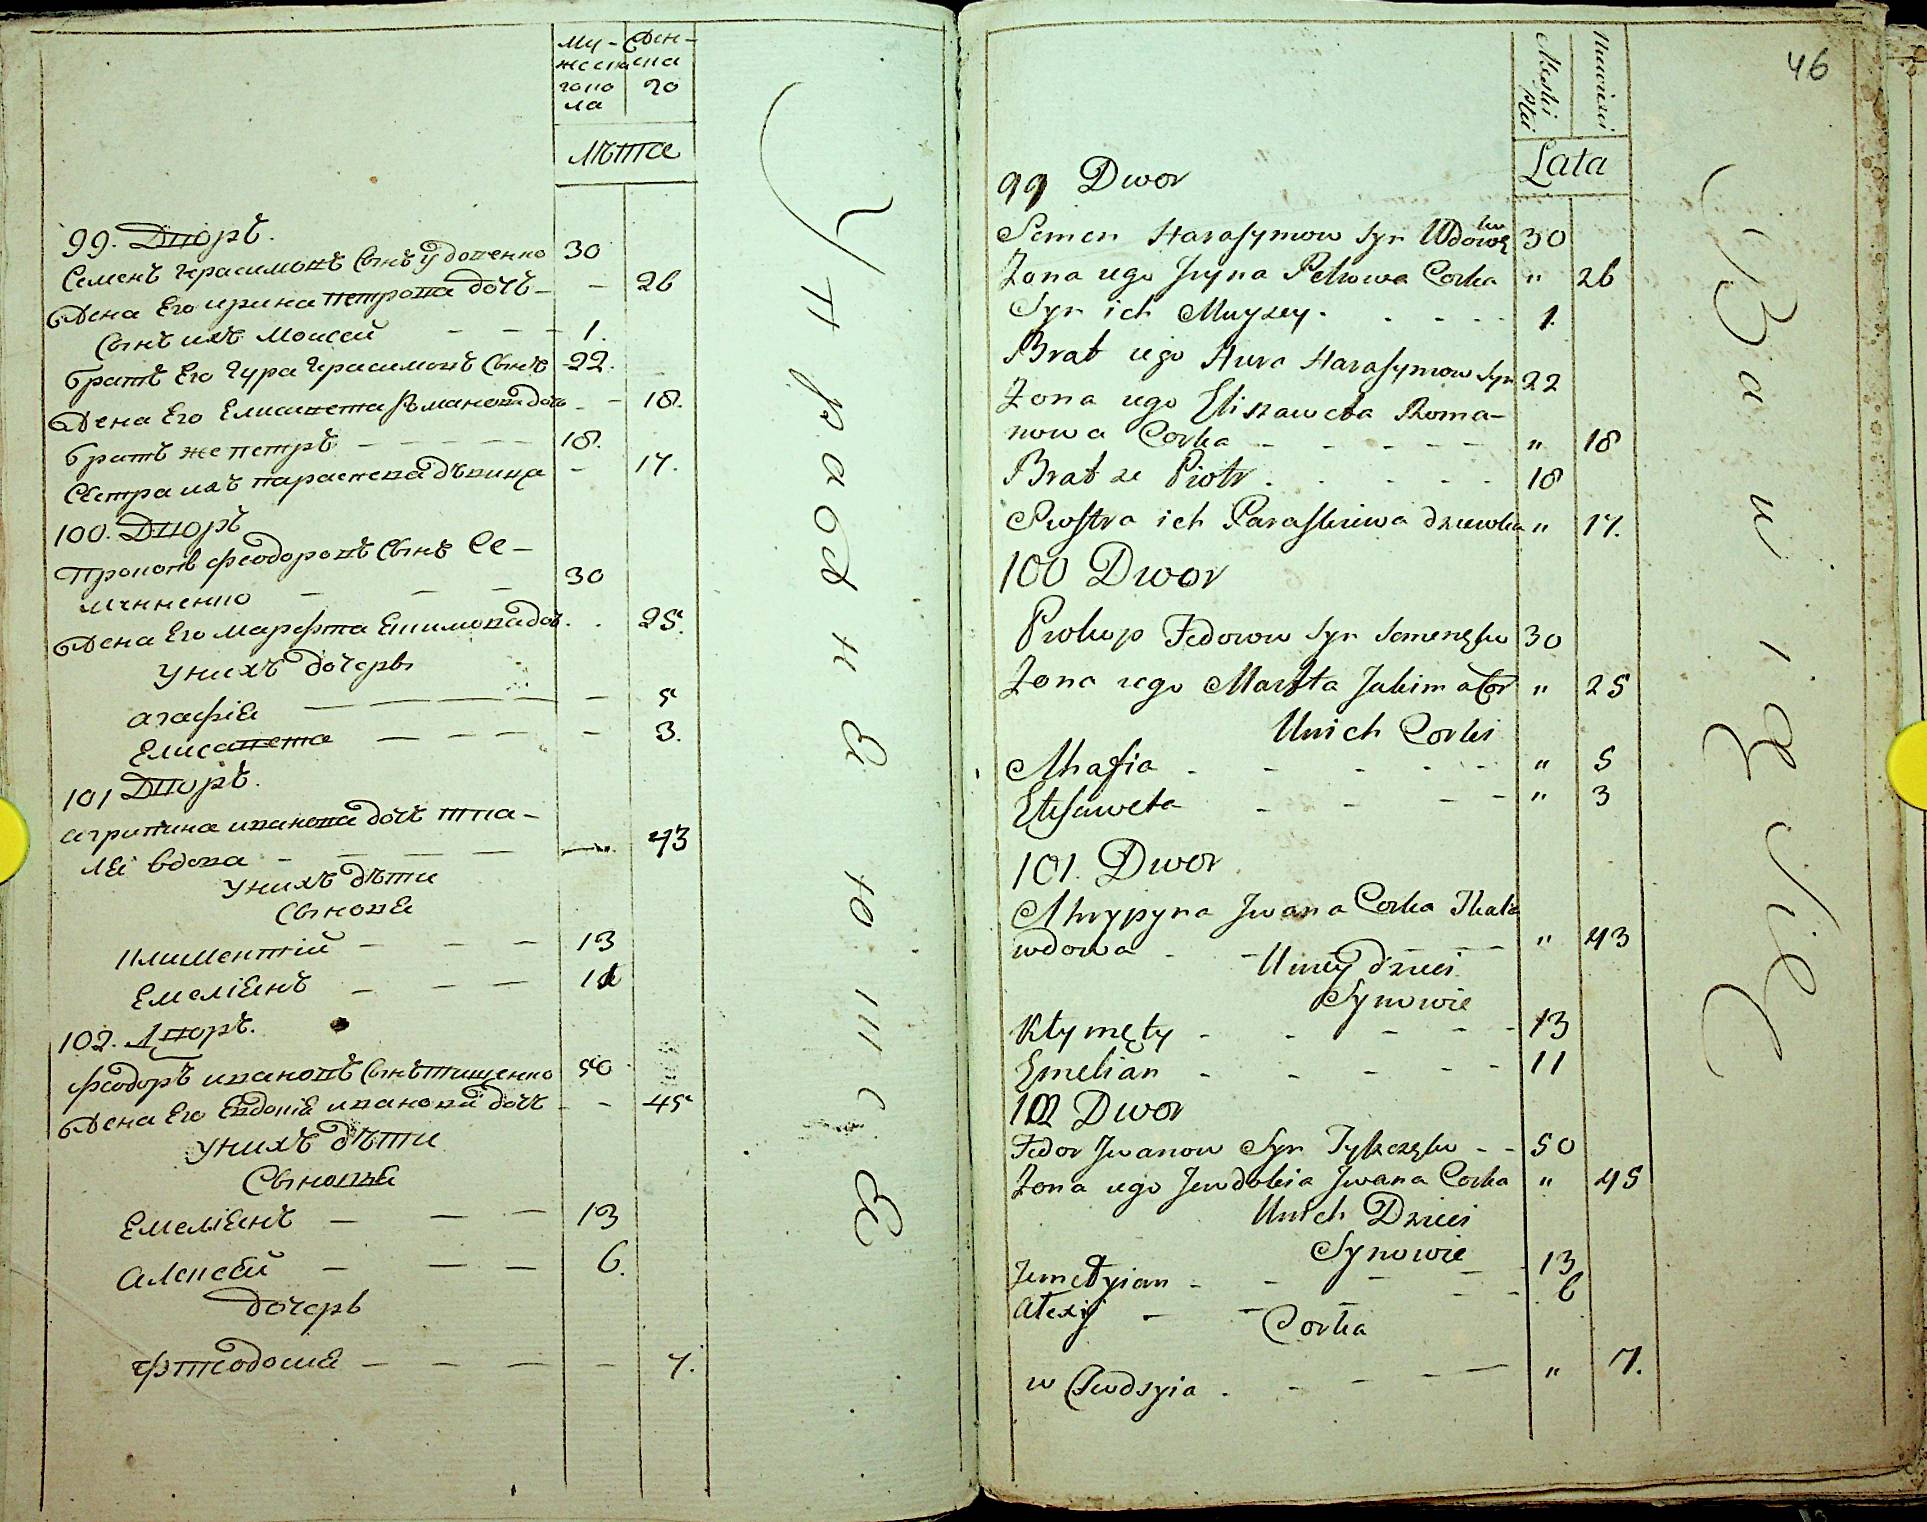 Му-
жеска
гопо
ла
Жен-
ска
го
Лѣта
99. Дворъ.
Семенъ Герасимовъ сынъ Удовенко 30
Жена Его ирина петрова дочь - - 26
Сынъ ихъ Моисей - - - 1.
братъ Его Гура Герасимовъ Сынъ 22.
Жена Его Елисавета Романова дочь - - 18.
братъ же петръ - - - - - 18.
Сестра ихъ параскева дѣвица - 17.
100. Дворъ
Прокопъ Феодоровъ Сынъ Се-
мененко - - - 30
Жена Его Марфта Екимова доч. . 25.
У нихъ дочерьи
агафіа - - - - - - 5
Елисавета - - - - - 3.
101 Дворъ.
агрипина иванова дочь тка-
леі вдова - - - - - „ 43
У нихъ дѣти
Сыновѣа
Климентій - - - 13
Емеліанъ - - - 11
102. Дворъ.
Феодоръ ивановъ Сынъ тищенко 50
Жена Его Евдокіа иванова дочь - - 45
У нихъ дѣти
Сыновѣа
Емеліанъ - - - 13
Алексѣй - - - 6.
дочерь
Фтеодосиа - - - - - 7.
Управненію ш с Е
46
Męski
płci
Lata
99 Dwor
Semen Harasymow Syn Wdowę 30
ko
Zona iego Iryna Petrowa Corka " 26
Syn ich Muyzey . . . . . 1.
Brat iego Hura Harasymow Syn 22
Zona iego Eliszaweta Roma-
nowa Corka - - - - - " 18
Brat ze Piotr . . . . . 18
Siostra ich Paraskiewa dziewka " 17.
100 Dwor
Prokop Fedorow Syn Semenęko 30
Zona iego Marfta Jakima Cor " 25
Unich Corki
Ahafia - - - - - " 5
Elisaweta - - - - " 3
101. Dwor
Ahrypyna Jwana Corka Tkala
wdowa - - - - " 43
Uniey dzieci
Synowie
Klymęty - - - - - 13
Emelian - - - - - 11
102 Dwor
Fedor Jwanow Syn Tyszczęko - - 50
Zona iego Jewdokia Jwana Corka " 45
Unich Dzieci
Synowie
Jemelyian - - - - 13
Alexij - - - - 6
Corka
w Chwdsyia . - - - - " 7.